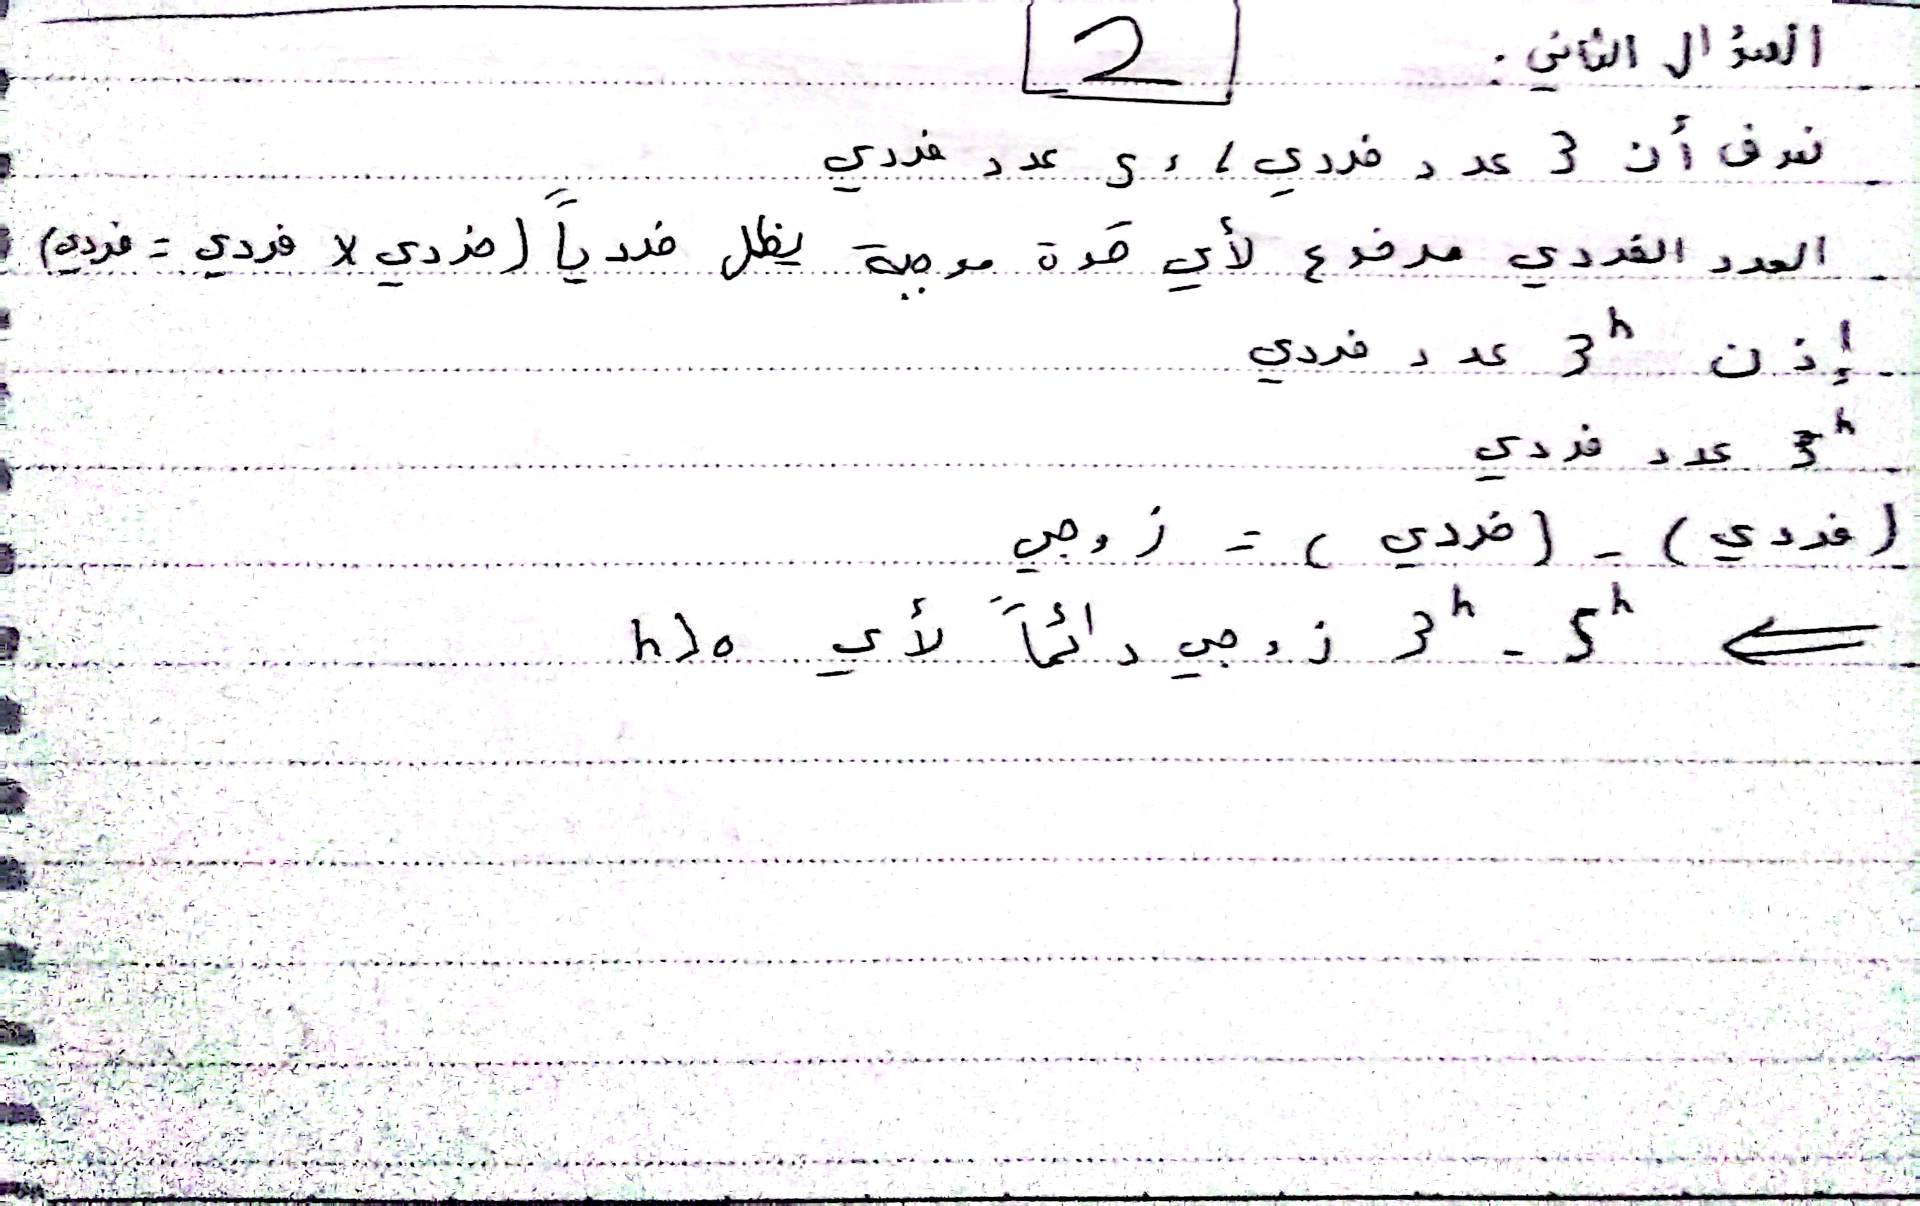 2
السؤال الثاني :
نعرف أن 3 عدد فردي ، و 5 عدد فردي
العدد الفردي مرفوع لأي قوة موجبة يظل فردياً (فردي × فردي = فردي)
إذن 3^h عدد فردي
3^h عدد فردي
(فردي) - (فردي) = زوجي
⇐ 5^h - 3^h زوجي دائماً لأي h>0